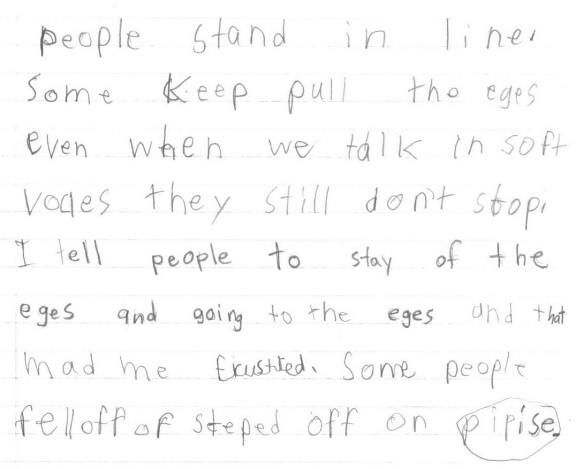 people stand in line.
Some Keep pull the eges
even when we talk in soft
voaes they still don't stop.
I tell people to stay of the
eges and going to the eges and that
mad me frustited. Some people
fell off of steped off on pipise.